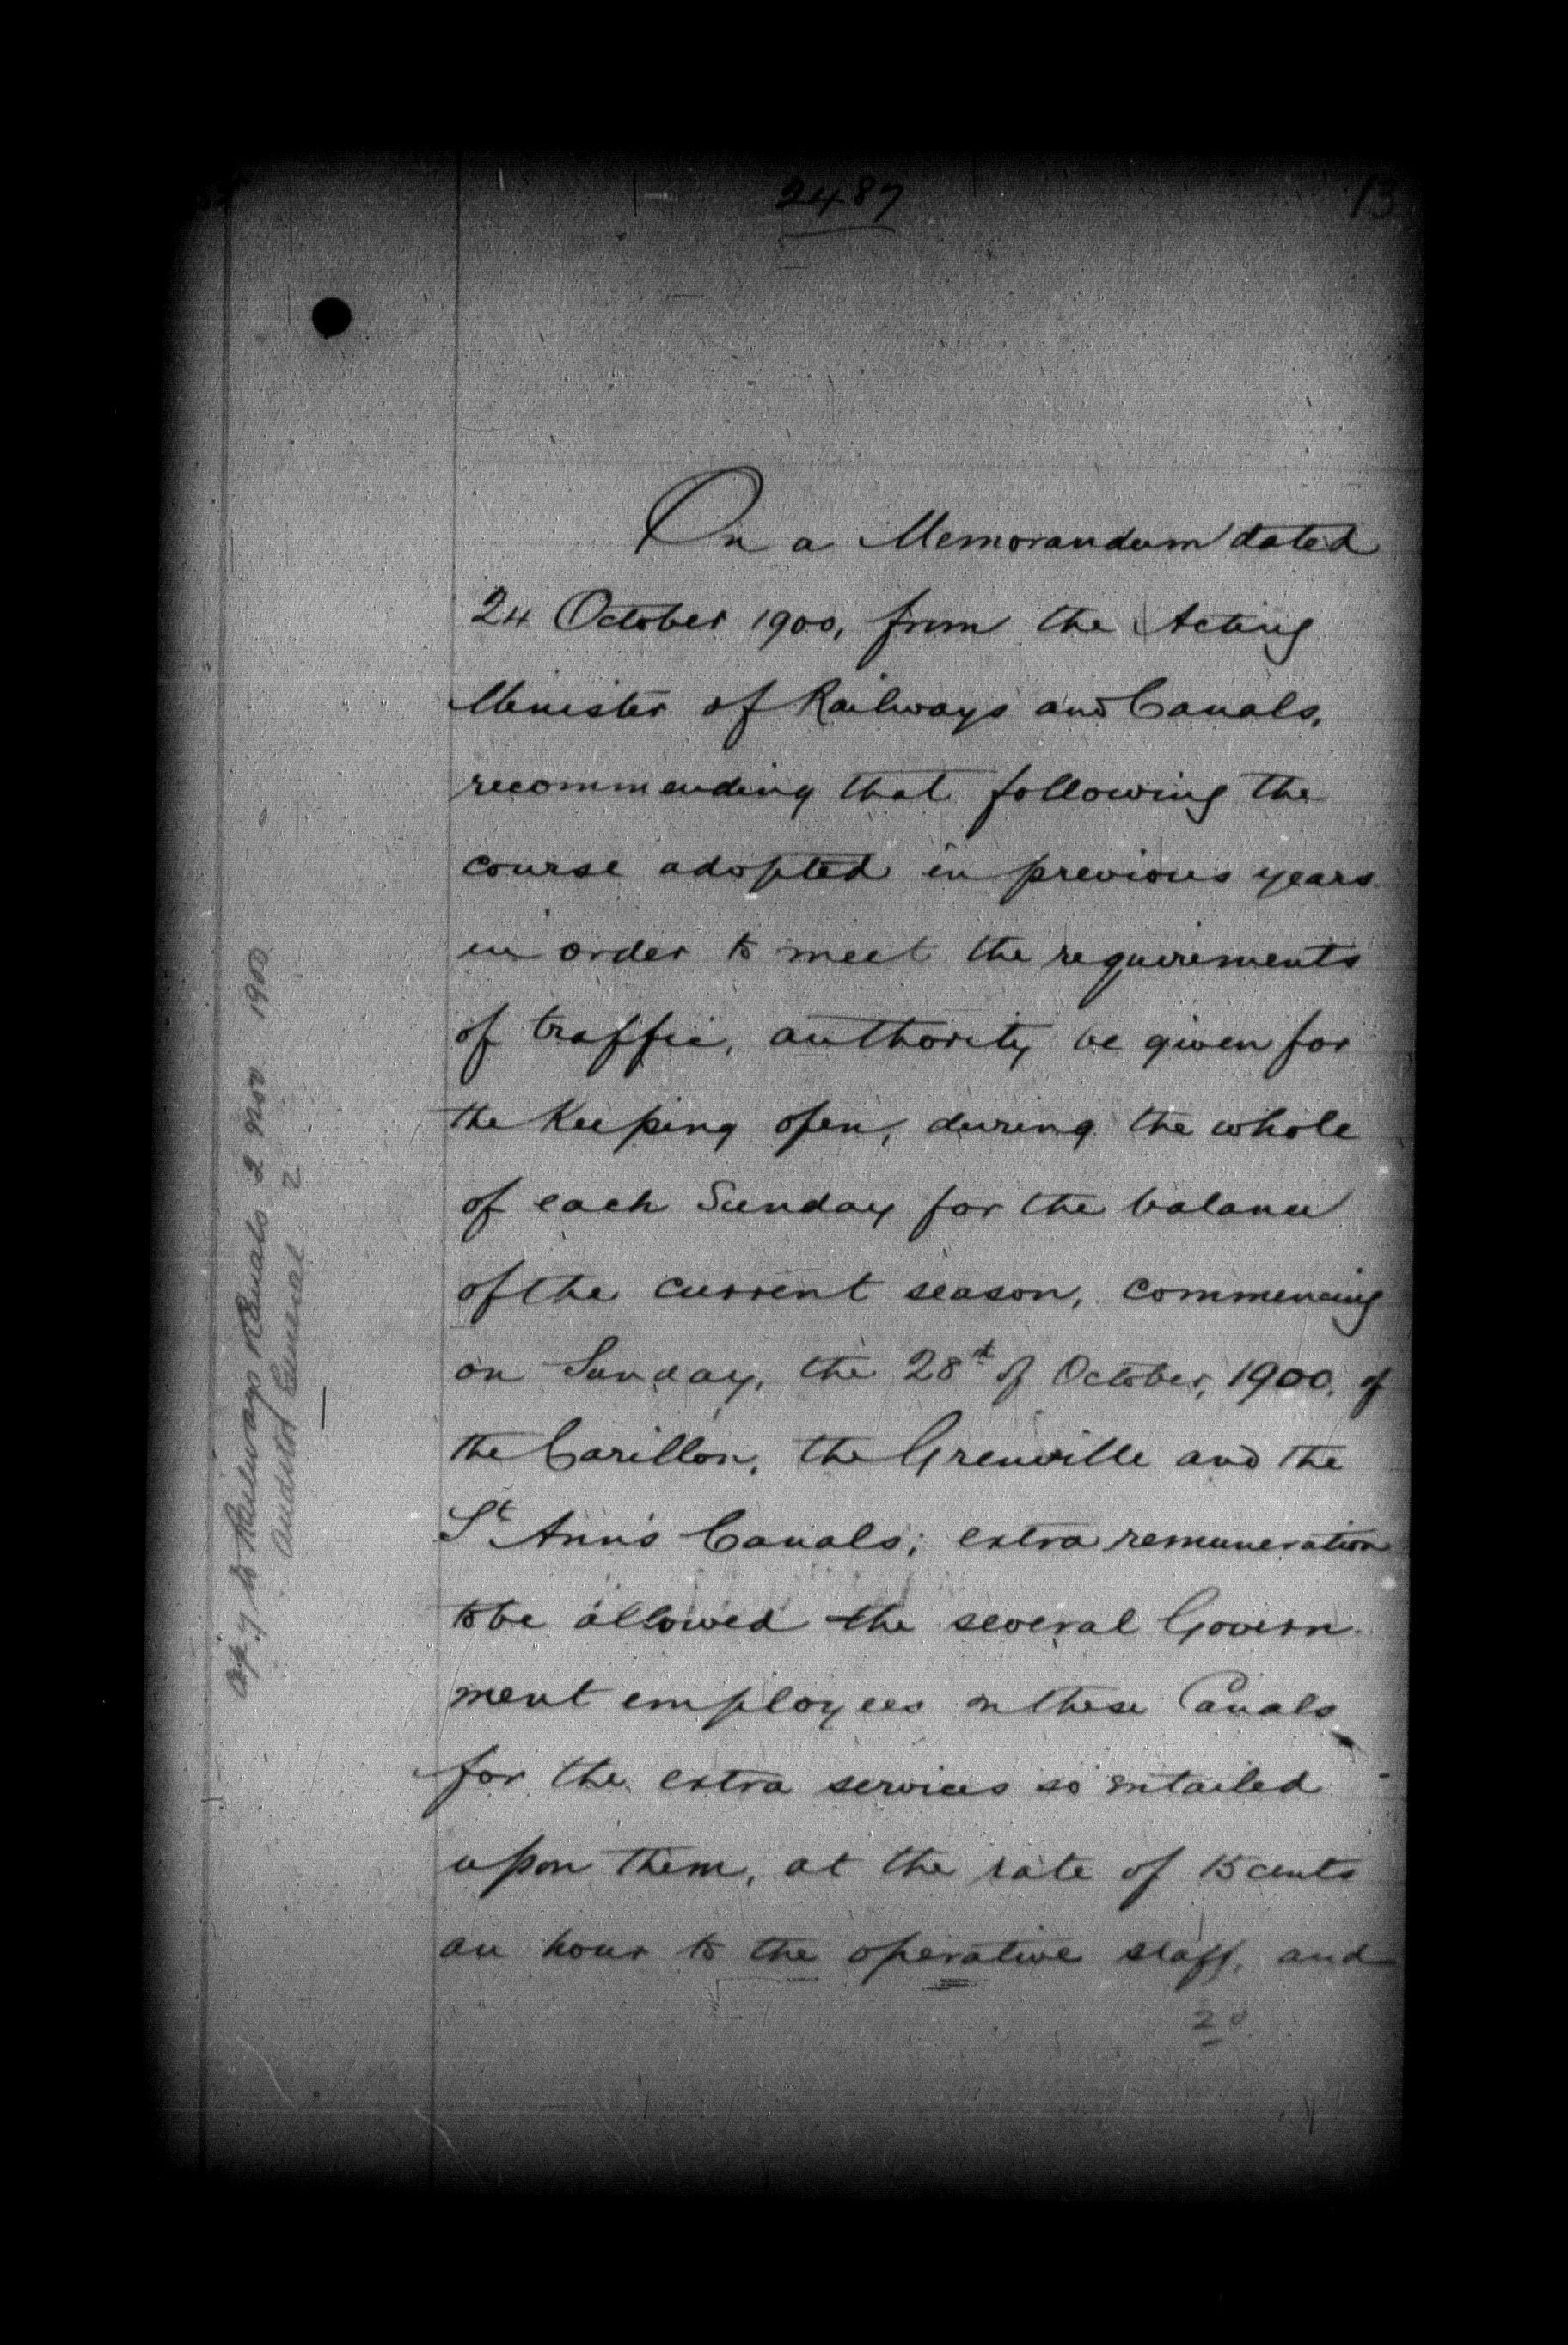 2487
13
On a Memorandum dated
24 October 1900, from the Acting
Minister of Railways and Canals,
recommending that following the
course adopted in previous years
in order to meet the requirements
of traffic, authority be given for
the Keeping open, during the whole
of each Sunday for the balance
of the current season, commencing
on Sunday, the 28th of October, 1900, of
the Carillon, the Grenville and the
St Ann's Canals; extra remuneration
to be allowed the several Govern-
ment employees on these Canals
for the extra services so entailed
upon them, at the rate of 15 cents
an hour to the operative staff, and
20
Cpy to Railways & Canals 2 Nov. 1900
Auditor General 2